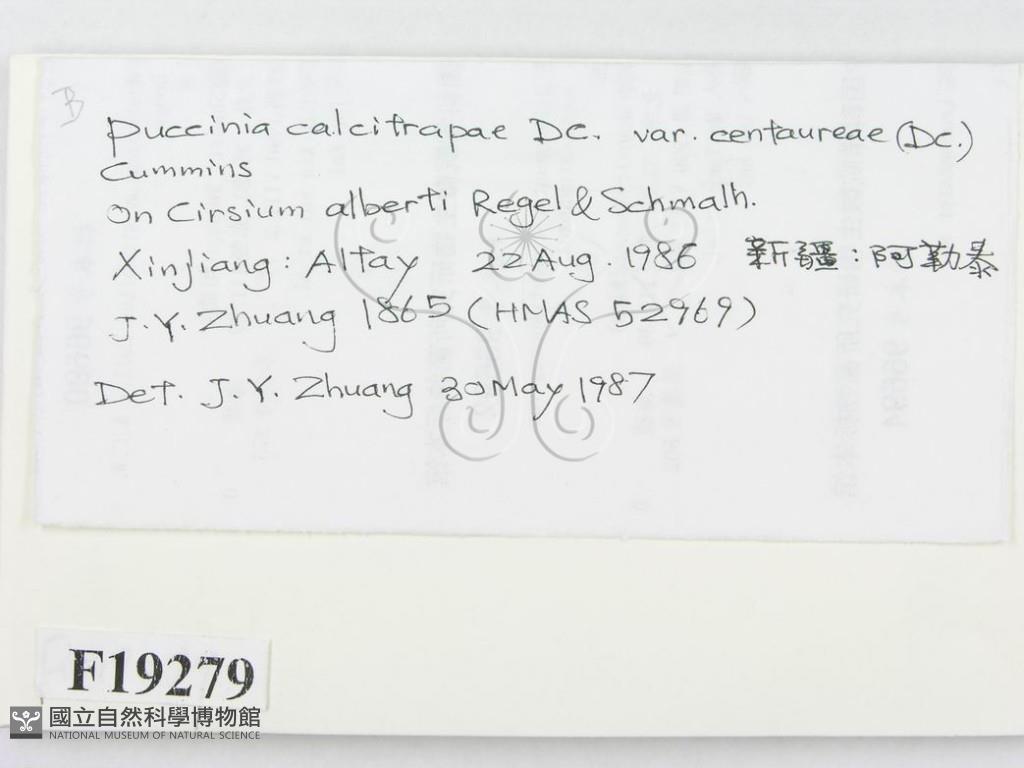 B
Puccinia calcitrapae DC. var. centaureae (DC.)
Cummins
On Cirsium alberti Regel & Schmalh.
Xinjiang: Altay 22 Aug. 1986 新疆:阿勒泰
J.Y. Zhuang 1865 (HMAS 52969)
Det. J.Y. Zhuang 30 May 1987
F19279
國立自然科學博物館
NATIONAL MUSEUM OF NATURAL SCIENCE